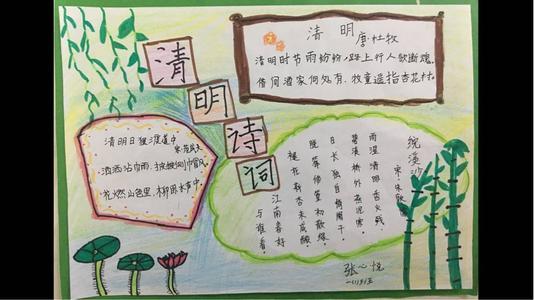 清明
清明
唐·杜牧
清明时节雨纷纷,路上行人欲断魂。
借问酒家何处有,牧童遥指杏花村。
诗词
清明日狸渡道中
宋·范成大
洒洒沾巾雨,披披侧帽风。
花燃山色里,柳卧水声中。
浣溪沙
宋·朱敦
雨湿清明香火残,
碧溪桥外燕泥寒。
日长独自倚阑干。
脱箨修篁初散绿,
褪花新杏未成酸。
江南春好
与谁看。
张心悦